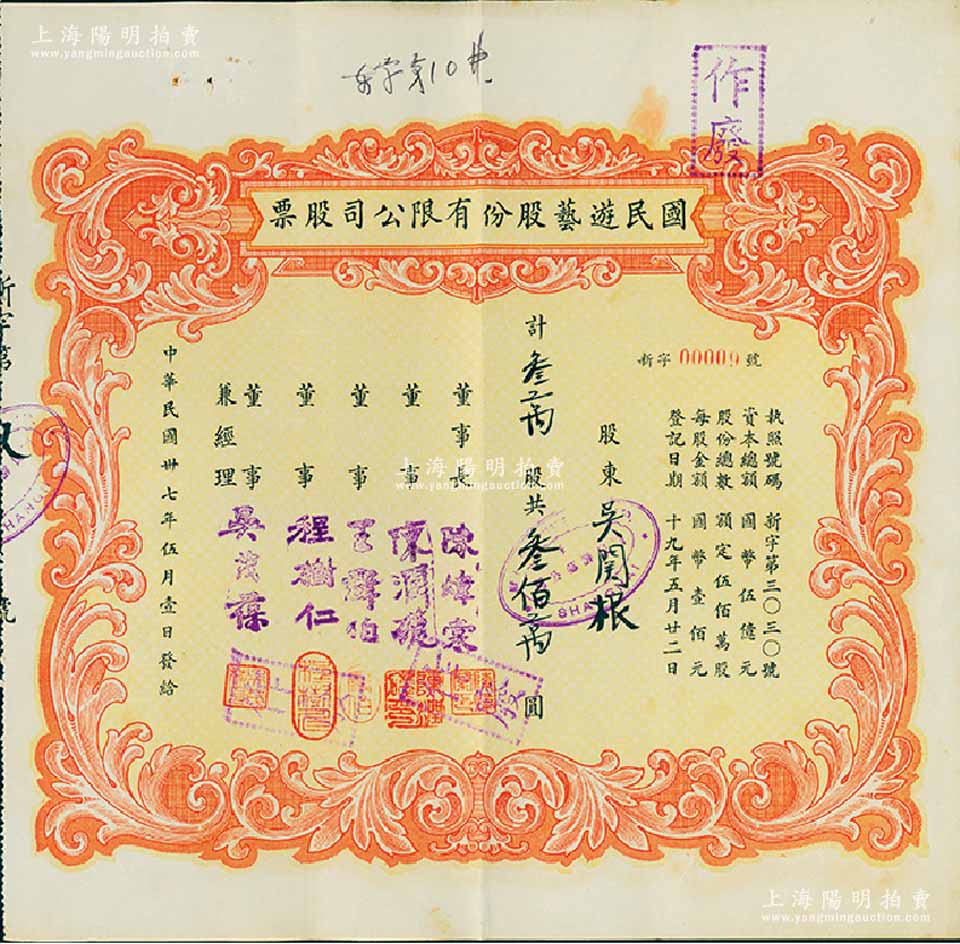 上海陽明拍賣
www.yangmingauction.com
作廢
國民遊藝股份有限公司股票
新字 00009 號
執照號碼 新字第三〇三〇號
資本總額 國幣伍億元
股份總數 額定伍佰萬股
每股金額 國幣壹佰元
登記日期 十九年五月廿二日
股東 吴閏根
SHANGHAI
計 叁萬 股共 叁佰萬 圓
董事長
董事
董事 王
董事 程樹仁
董事兼經理 吴
中華民國卅七年伍月壹日發給
新字第
號
上海陽明拍賣
www.yangmingauction.com
上海陽明拍賣
www.yangmingauction.com